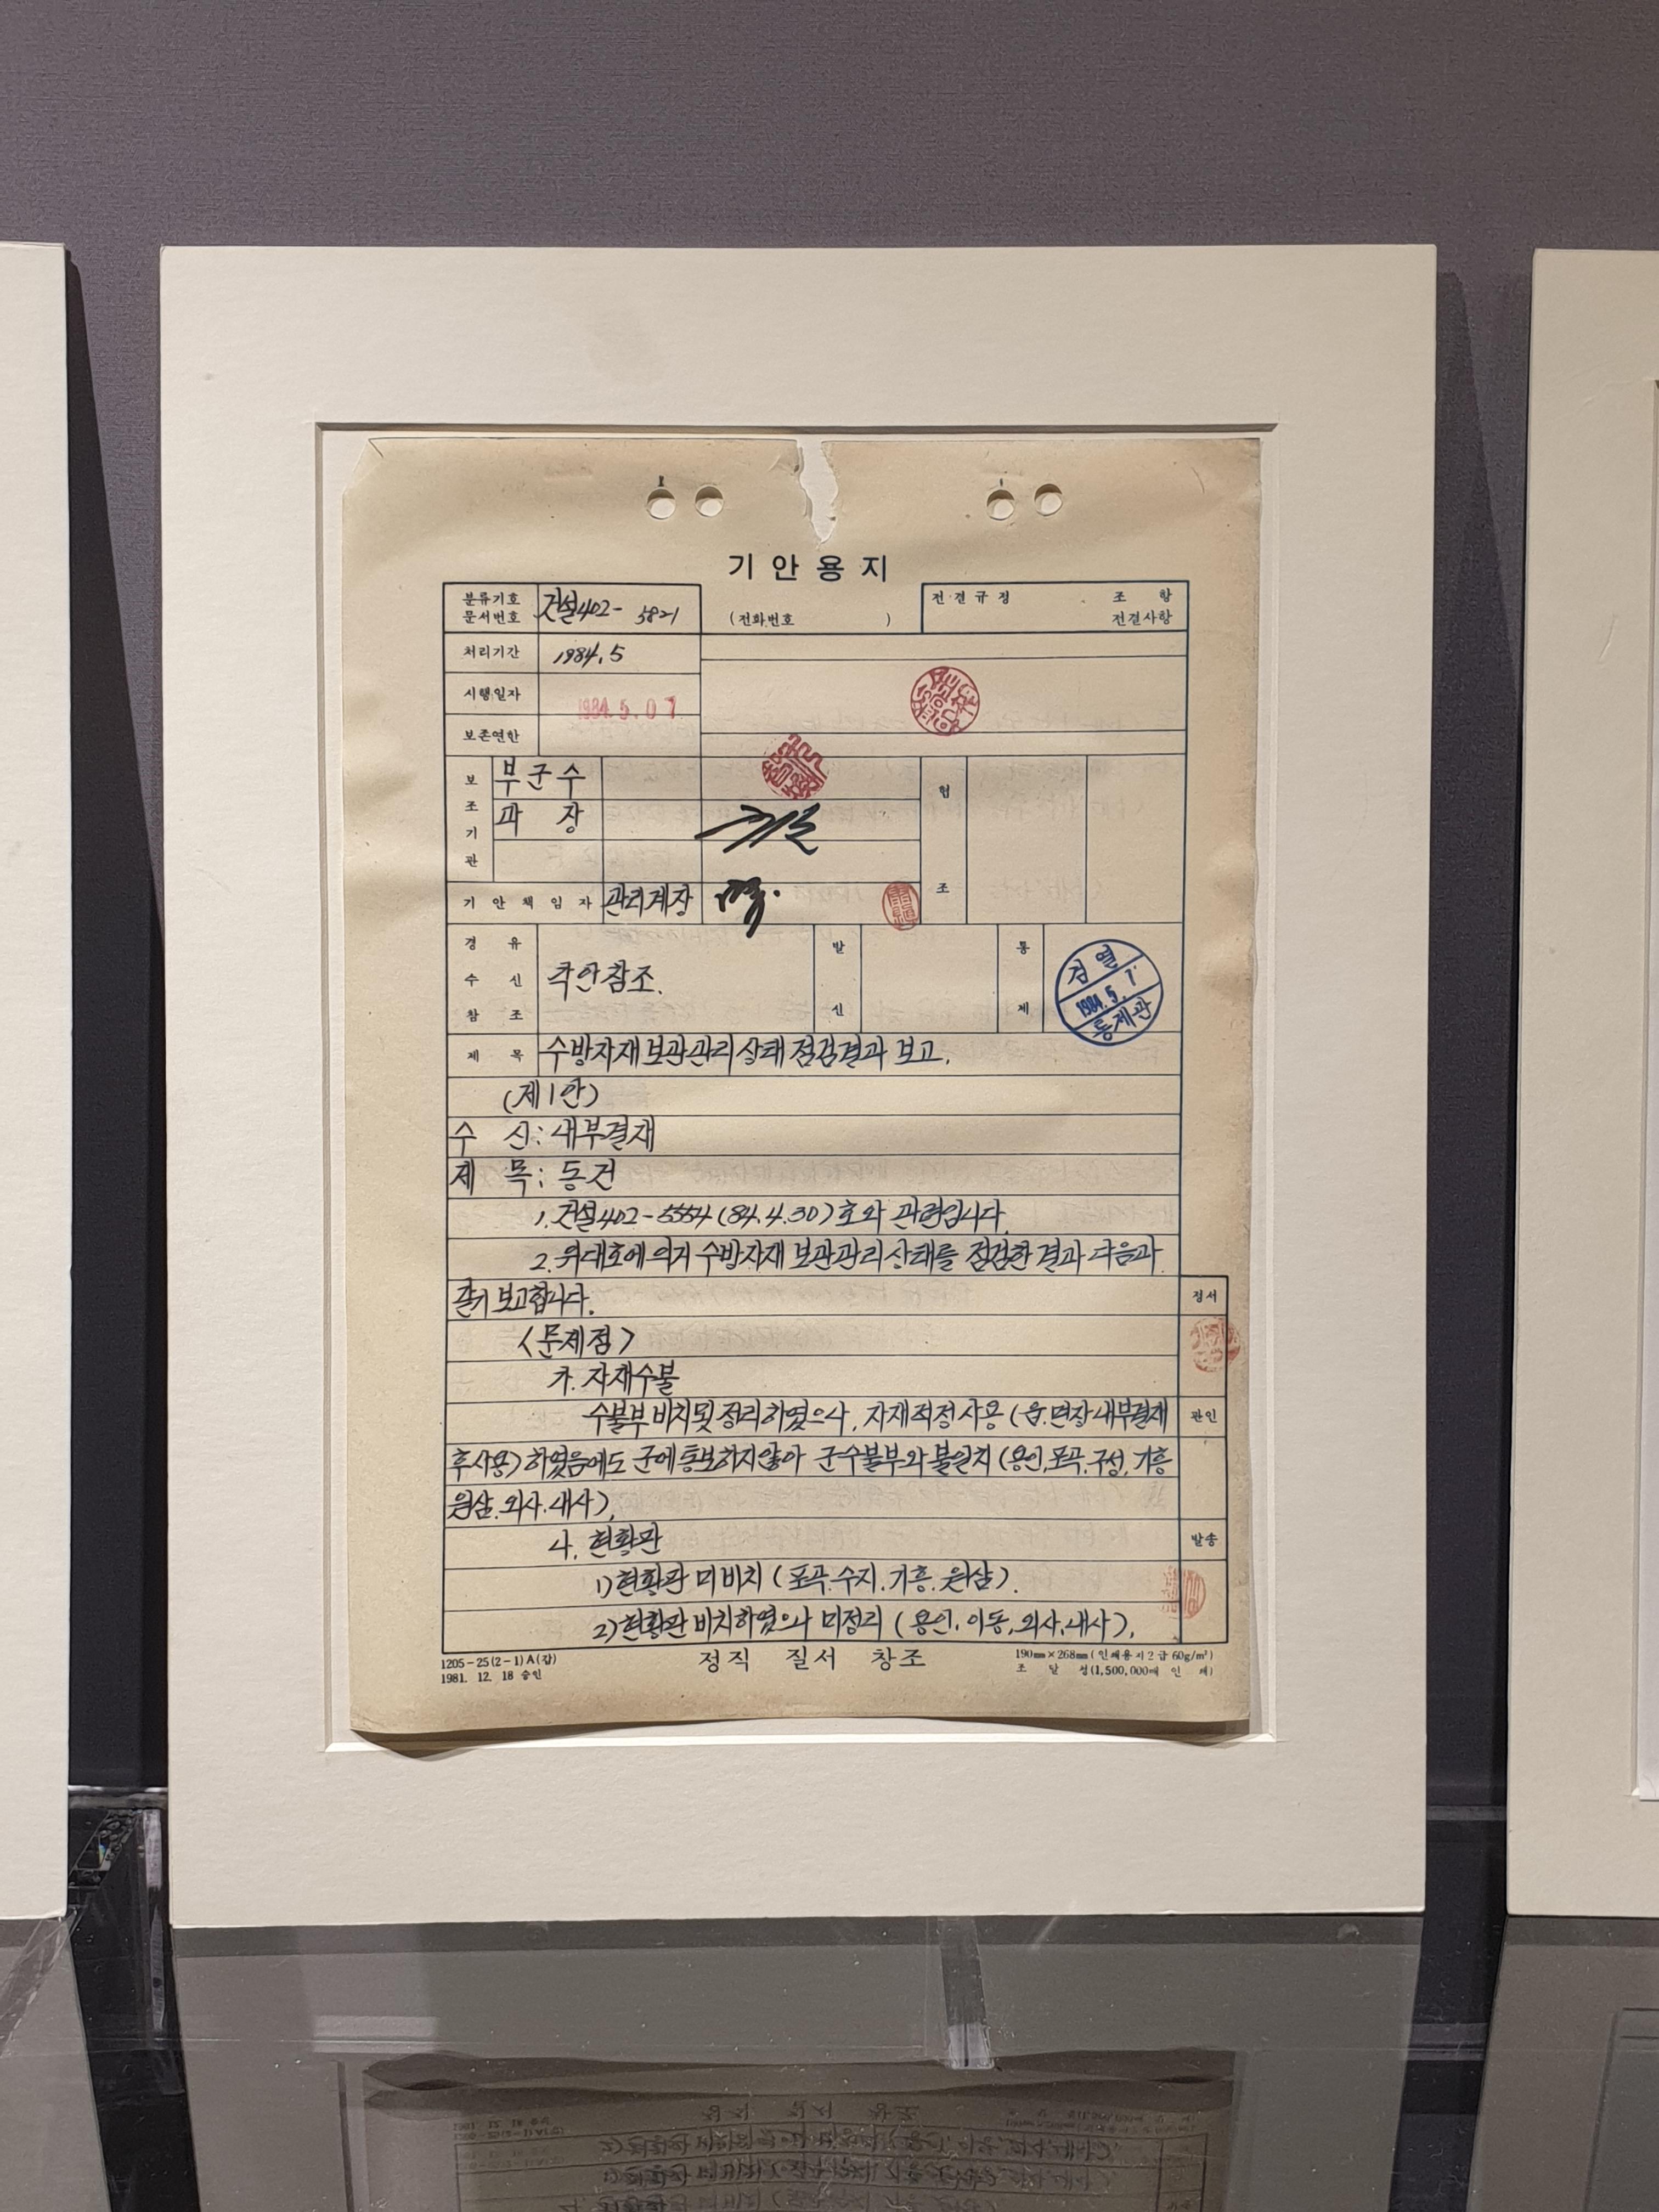 기안용지
분류기호 문서번호 건설402- 5821
(전화번호 )
전결규정 조 항 전결사항
처리기간 1984. 5
시행일자 1984. 5. 0 7
보존연한
보조기관 부군수
과 장
협조
기안책임자 관리계장
경유 수신 참조 각안참조.
발신
통제
검열 1984. 5. 7. 통제관
제 목 수방자재 보관관리 상태 점검결과 보고.
(제1안)
수 신: 내부결재
제 목: 동건
1. 건설402-5554(84.4.30)호와 관련입니다.
2. 위대호에 의거 수방자재 보관관리 상태를 점검한 결과 다음과
같이 보고합니다.
정서
<문제점>
가. 자재수불
수불부 비치및 정리하였으나, 자재적정사용(읍.면장 내부결재
관인
후사용)하였음에도 군에 통보하지않아 군수불부와 불일치(용인.포곡.구성.기흥
원삼.외사.내사).
나. 현황판
발송
1) 현황판 미비치(포곡.수지.기흥.원삼).
2) 현황판 비치하였으나 미정리(용인.이동.외사.내사).
1205-25(2-1)A(갑)
1981. 12. 18 승인
정직 질서 창조
190mm×268mm(인쇄용지2급 60g/m²)
조 달 청(1,500,000매 인 쇄)